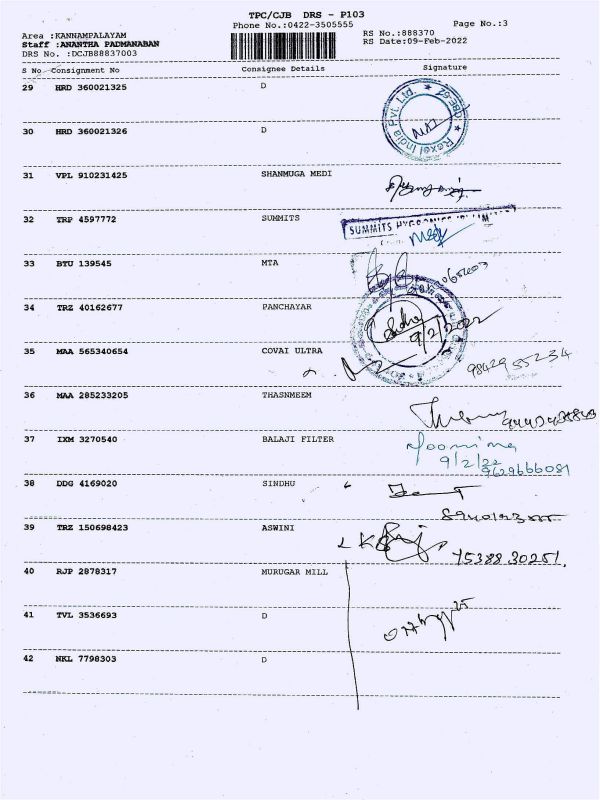 TPC/CJB DRS - P103
Phone No.:0422-3505555
Page No.:3
Area :KANNAMPALAYAM
RS No.:888370
Staff :ANANTHA PADMANABAN
RS Date:09-Feb-2022
DRS No. :DCJB88837003
S No Consignment No Consignee Details Signature
29 HRD 360021325 D
30 HRD 360021326 D
Rexel India Pvt. Ltd.
31 VPL 910231425 SHANMUGA MEDI
32 TRP 4597772 SUMMITS
SUMMITS
33 BTU 139545 MTA
34 TRZ 40162677 PANCHAYAR
9/2/2022
35 MAA 565340654 COVAI ULTRA
9842955234
36 MAA 285233205 THASNMEEM
37 IXM 3270540 BALAJI FILTER
Poornima
9/2/22
9629666081
38 DDG 4169020 SINDHU
39 TRZ 150698423 ASWINI
75388 30251.
40 RJP 2878317 MURUGAR MILL
41 TVL 3536693 D
42 NKL 7798303 D